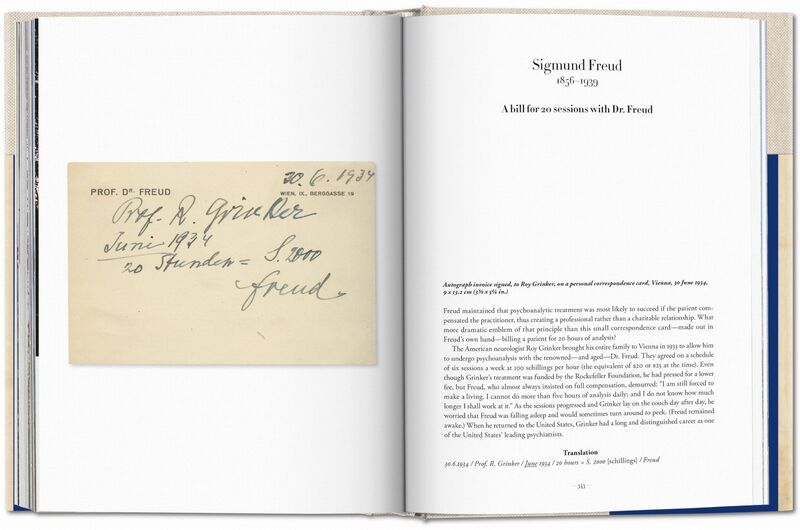 PROF. DR. FREUD
30.6.1934
WIEN, IX., BERGGASSE 19
Prof. R. Grinker
Juni 1934
20 Stunden = S. 2000
Freud
Sigmund Freud
1856–1939
A bill for 20 sessions with Dr. Freud
Autograph invoice signed, to Roy Grinker, on a personal correspondence card, Vienna, 30 June 1934,
9 x 13.2 cm (3⅝ x 5¼ in.)
Freud maintained that psychoanalytic treatment was most likely to succeed if the patient com-
pensated the practitioner, thus creating a professional rather than a charitable relationship. What
more dramatic emblem of that principle than this small correspondence card—made out in
Freud's own hand—billing a patient for 20 hours of analysis?
The American neurologist Roy Grinker brought his entire family to Vienna in 1933 to allow him
to undergo psychoanalysis with the renowned—and aged—Dr. Freud. They agreed on a schedule
of six sessions a week at 100 schillings per hour (the equivalent of $20 or $25 at the time). Even
though Grinker's treatment was funded by the Rockefeller Foundation, he had pressed for a lower
fee, but Freud, who almost always insisted on full compensation, demurred: "I am still forced to
make a living. I cannot do more than five hours of analysis daily; and I do not know how much
longer I shall work at it." As the sessions progressed and Grinker lay on the couch day after day, he
worried that Freud was falling asleep and would sometimes turn around to peek. (Freud remained
awake.) When he returned to the United States, Grinker had a long and distinguished career as one
of the United States' leading psychiatrists.
Translation
30.6.1934 / Prof. R. Grinker / June 1934 / 20 hours = S. 2000 [schillings] / Freud
—343—